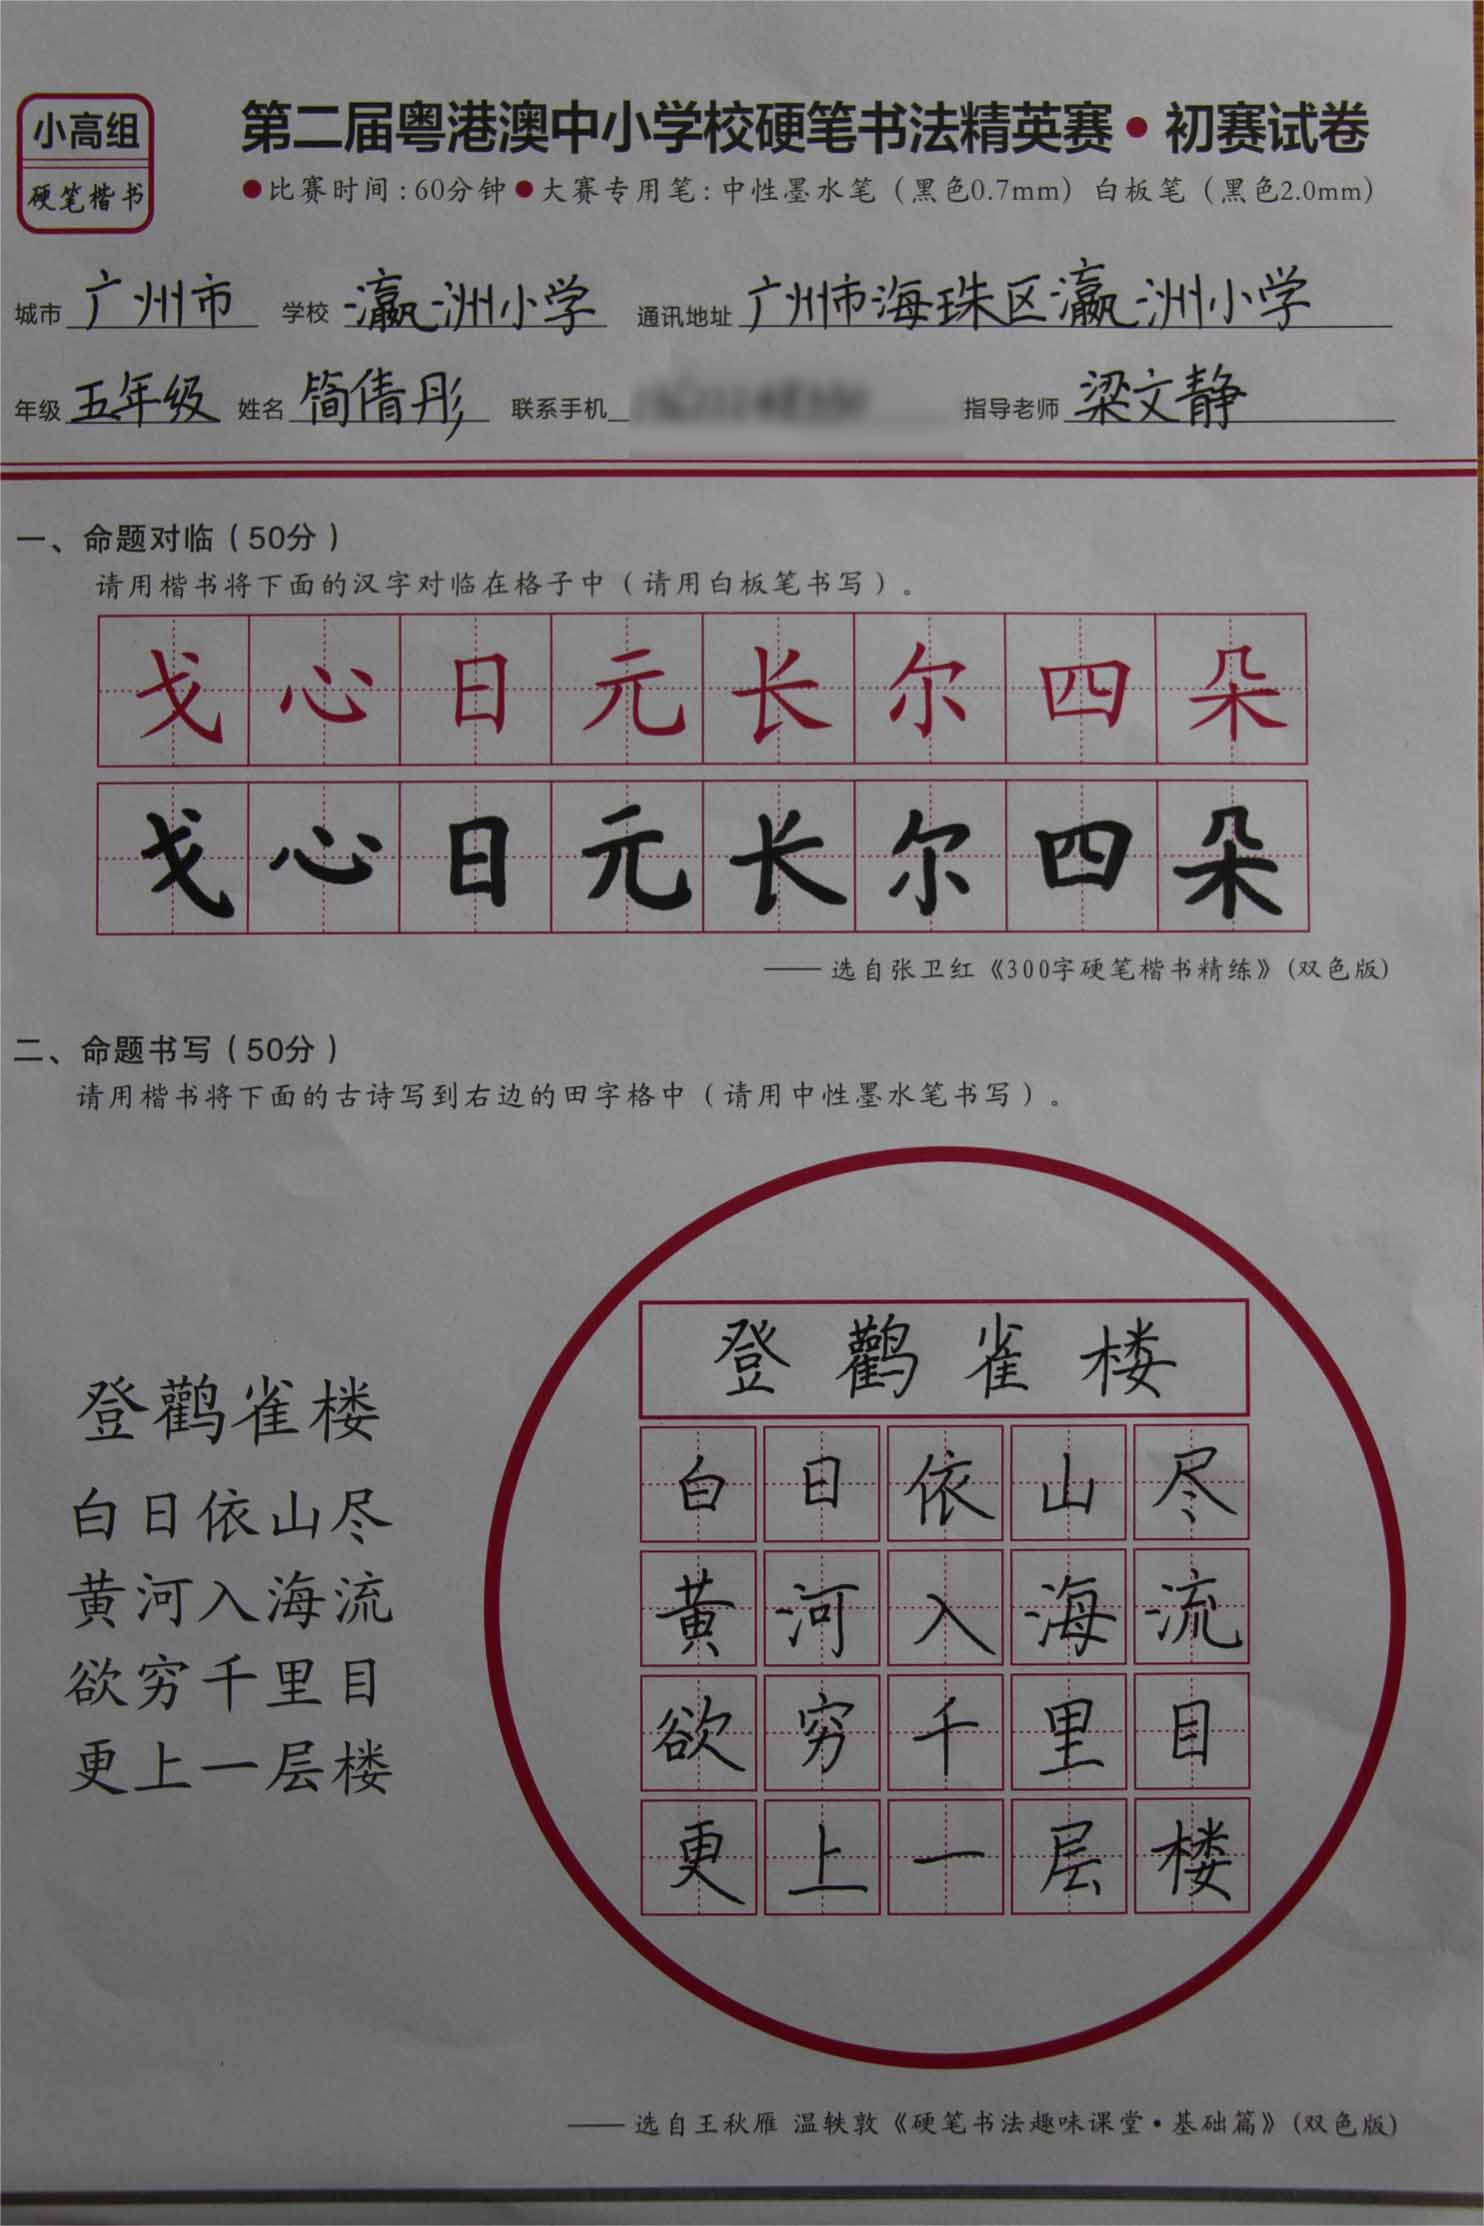 小高组
硬笔楷书
第二届粤港澳中小学校硬笔书法精英赛•初赛试卷
●比赛时间:60分钟●大赛专用笔:中性墨水笔（黑色0.7mm）白板笔（黑色2.0mm）
城市 广州市 学校 瀛洲小学 通讯地址 广州市海珠区瀛洲小学
年级 五年级 姓名 简倩彤 联系手机 指导老师 梁文静
一、命题对临（50分）
请用楷书将下面的汉字对临在格子中（请用白板笔书写）。
戈心日元长尔四朵
戈心日元长尔四朵
—— 选自张卫红《300字硬笔楷书精练》(双色版)
二、命题书写（50分）
请用楷书将下面的古诗写到右边的田字格中（请用中性墨水笔书写）。
登鹳雀楼
白日依山尽
黄河入海流
欲穷千里目
更上一层楼
登鹳雀楼
白日依山尽
黄河入海流
欲穷千里目
更上一层楼
—— 选自王秋雁 温轶敦《硬笔书法趣味课堂·基础篇》(双色版)